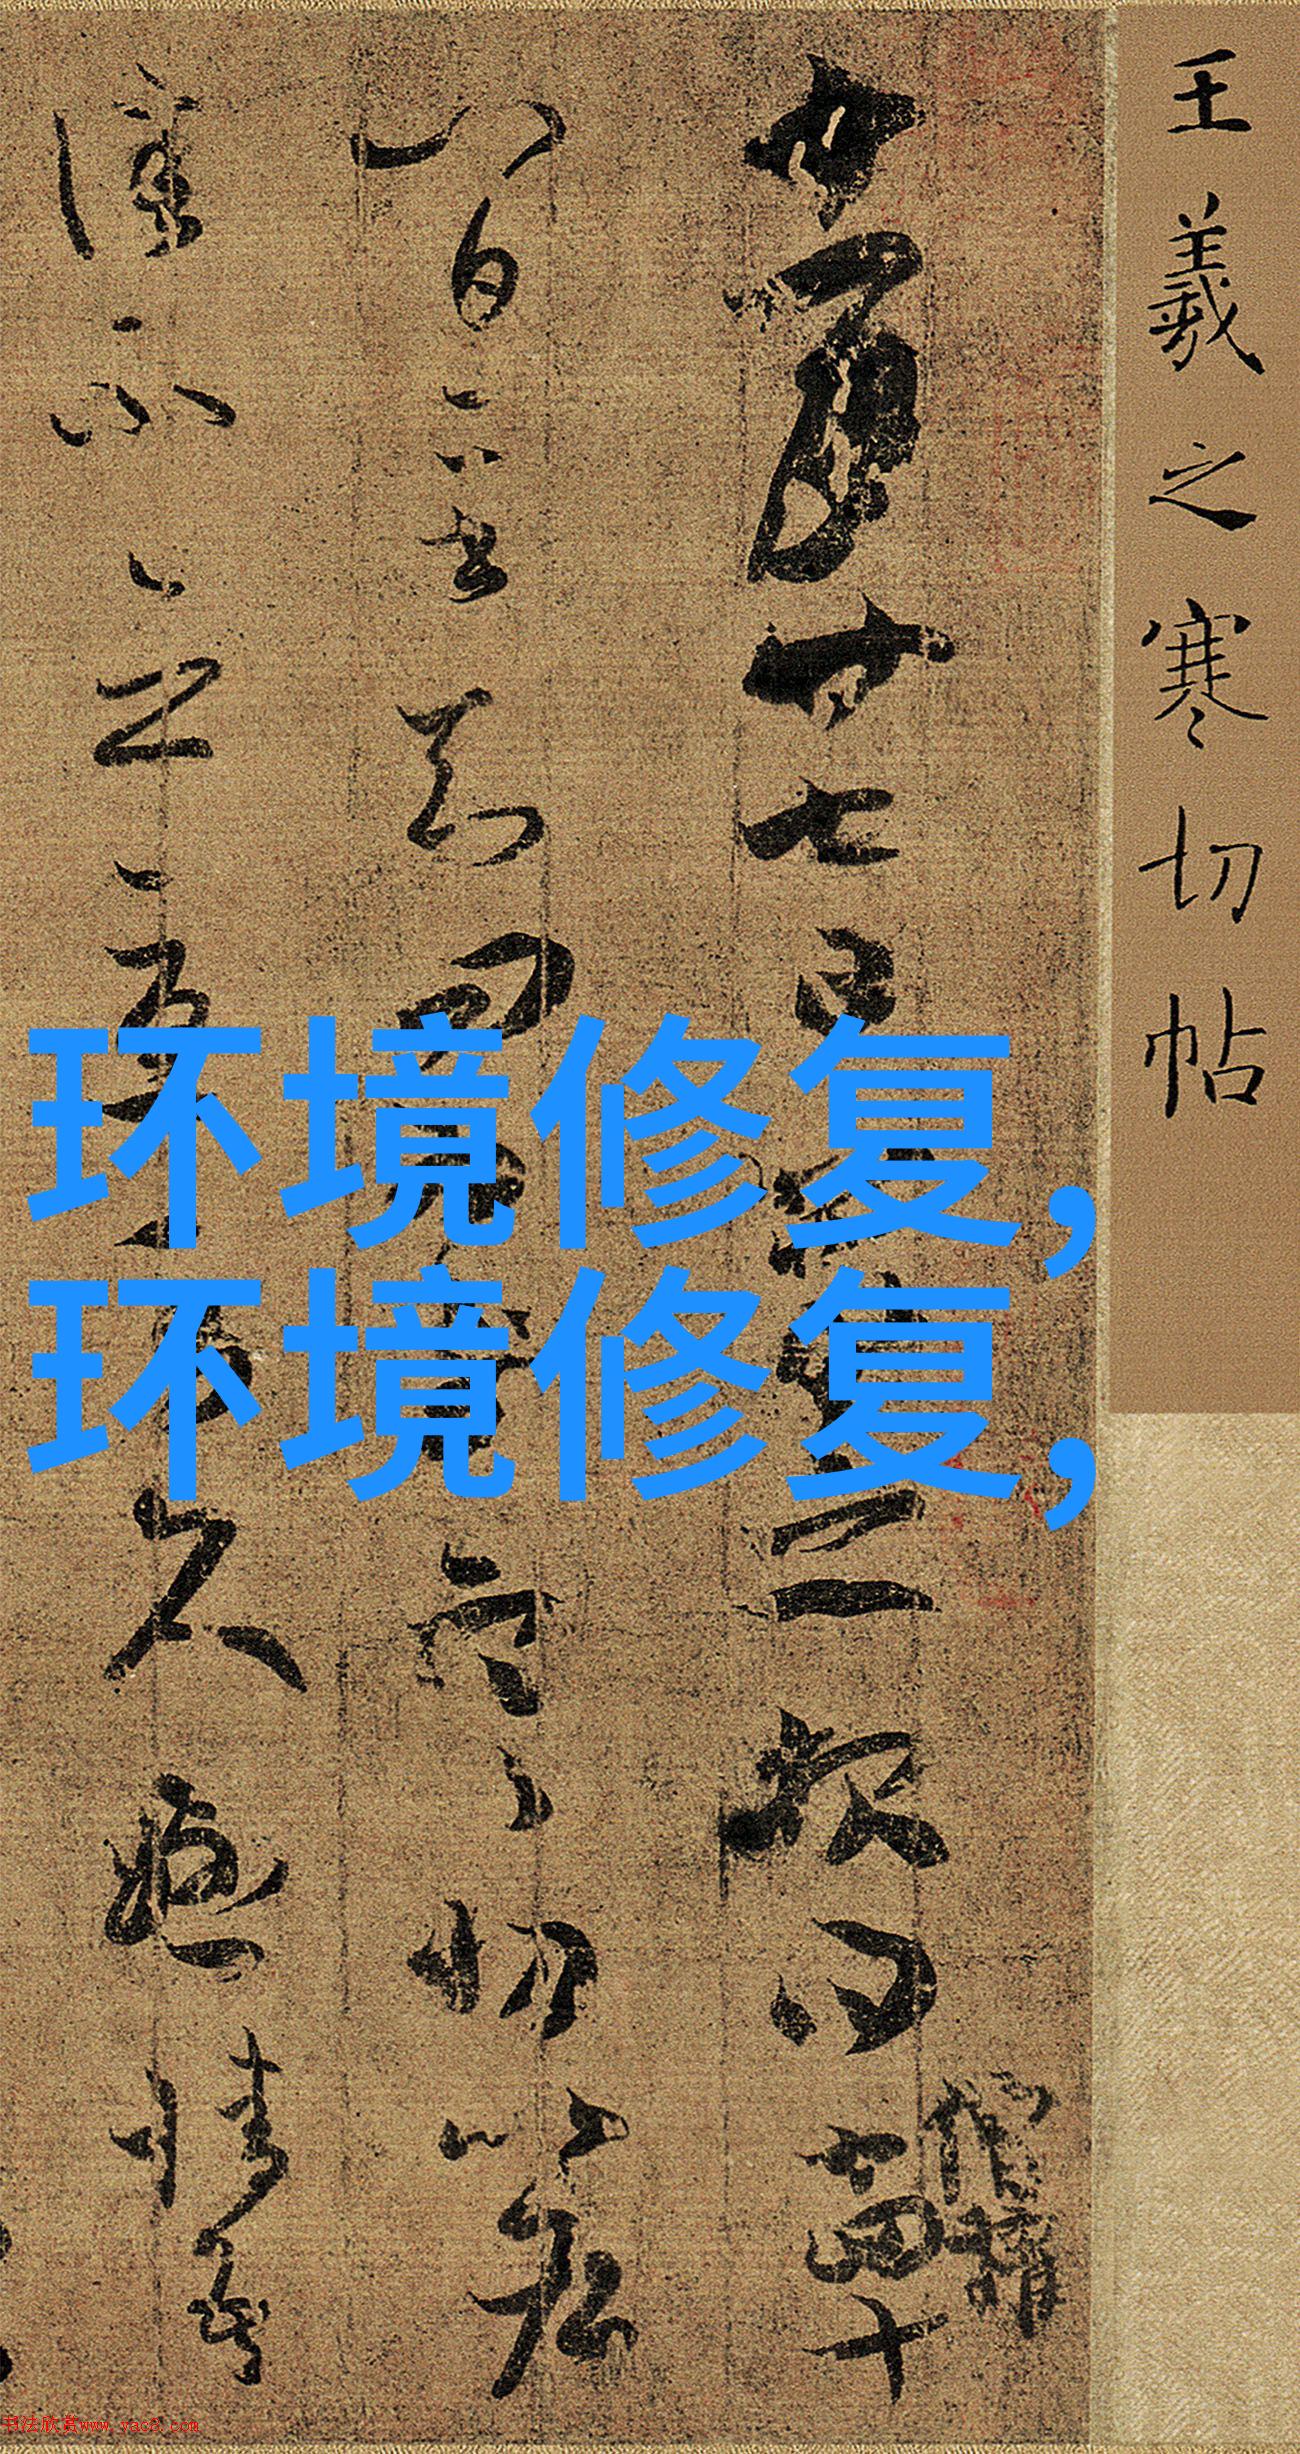 王羲之寒切帖
十一月廿七日羲之報得十四十
僧權
八日二書知問為慰寒切比各
佳不念憂勞久懸情吾
环境修复,
环境修复,
书法欣赏www.yac8.com